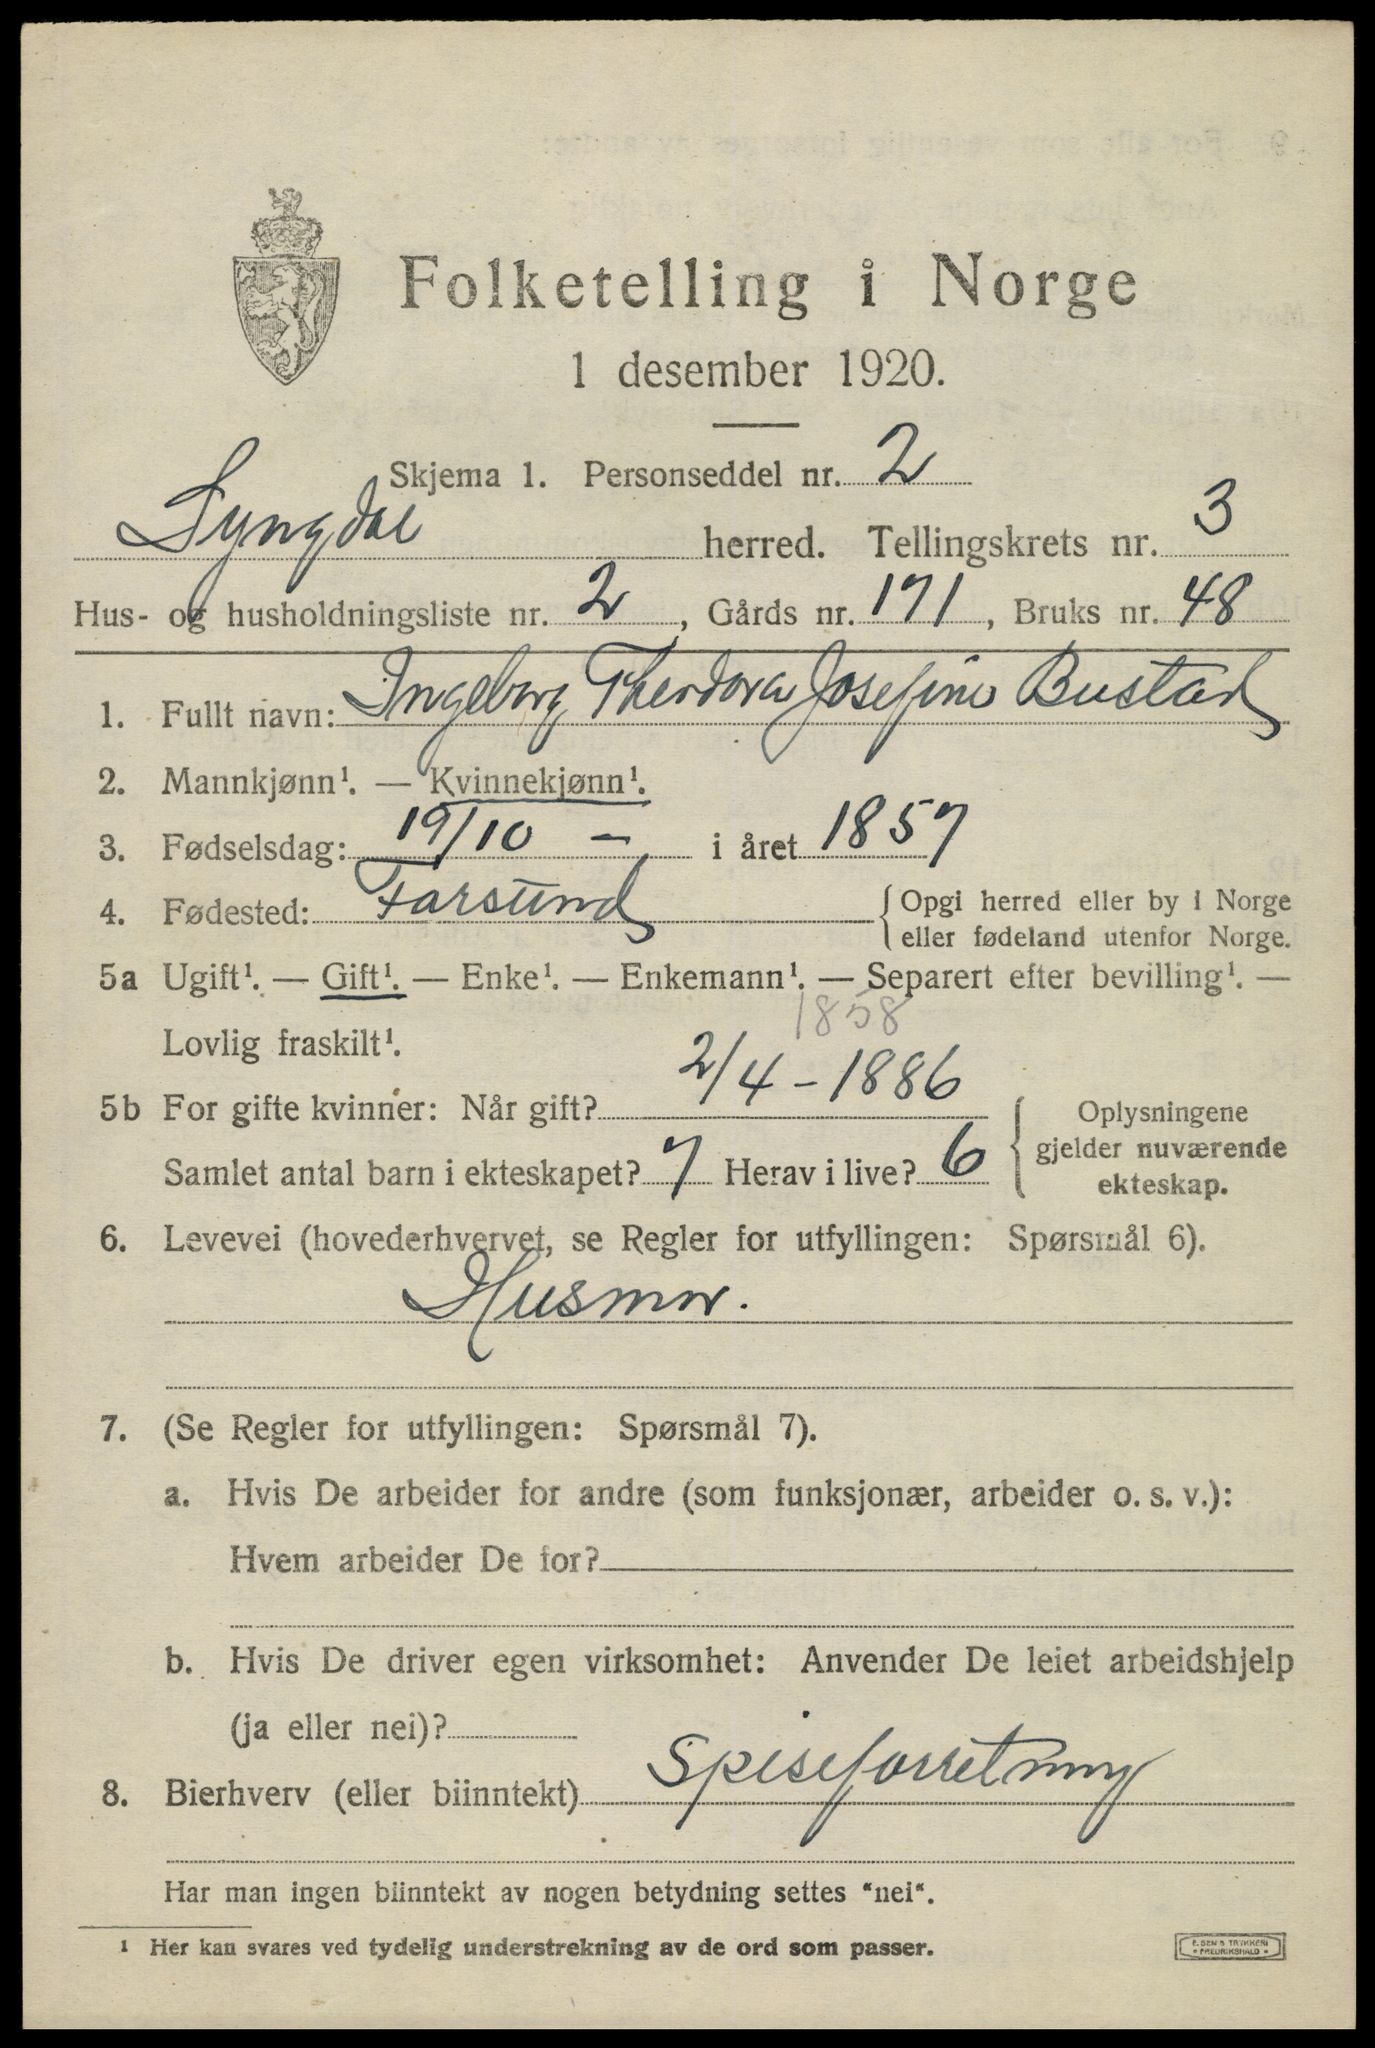 Folketelling i Norge
1 desember 1920.
Skjema 1. Personseddel nr. 2
Lyngdal herred. Tellingskrets nr. 3
Hus- og husholdningsliste nr. 2, Gårds nr. 171, Bruks nr. 48
1. Fullt navn: Ingeborg Theodora Josefine Bustad
2. Mannkjønn¹. — Kvinnekjønn¹.
3. Fødselsdag: 19/10 – i året 1857
4. Fødested: Farsund {Opgi herred eller by i Norge
eller fødeland utenfor Norge.
5a Ugift¹. — Gift¹. — Enke¹. — Enkemann¹. — Separert efter bevilling¹. —
1858
Lovlig fraskilt¹.
5b For gifte kvinner: Når gift? 2/4 – 1886
Samlet antal barn i ekteskapet? 7 Herav i live? 6
{Oplysningene
gjelder nuværende
ekteskap.
6. Levevei (hovederhvervet, se Regler for utfyllingen: Spørsmål 6).
Husmor.
7. (Se Regler for utfyllingen: Spørsmål 7).
a. Hvis De arbeider for andre (som funksjonær, arbeider o. s. v.):
Hvem arbeider De for?
b. Hvis De driver egen virksomhet: Anvender De leiet arbeidshjelp
(ja eller nei)?
8. Bierhverv (eller biinntekt) Spiseforretning
Har man ingen biinntekt av nogen betydning settes "nei".
¹ Her kan svares ved tydelig understrekning av de ord som passer.
E. SEM'S TRYKKERI
• FREDRIKSHALD •